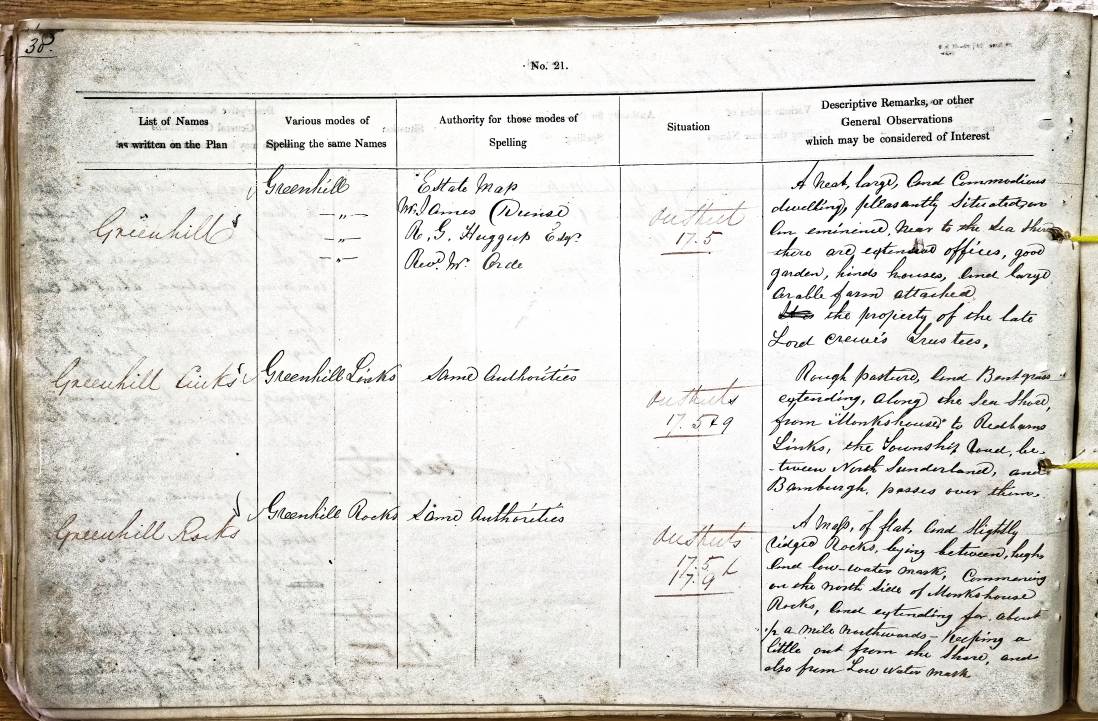 38.
No. 21.
List of Names
as written on the Plan
Various modes of
Spelling the same Names
Authority for those modes of
Spelling
Situation
Descriptive Remarks, or other
General Observations
which may be considered of Interest
Greenhill
Greenhill
— „ —
— „ —
— „ —
Estate Map
Mr. James
R. G. Huggup Esqr.
Revd. Mr. Orde
On sheet
17.5
A Neat, large, and Commodious
dwelling, pleasantly Situated, on
an eminence near to the Sea Shore
there are extensive offices, good
garden, hinds houses, and large
arable farm attached
the property of the late
Lord Crewe's Trustees.
Greenhill Links
Greenhill Links
Same Authorities
On sheets
17. 5 & 9
Rough pasture, and Bent grass
extending, along the Sea Shore,
from "Monkshouse" to Redbarns
Links, the Township road, be-
-tween North Sunderland, and
Bamburgh, passes over them.
Greenhill Rocks
Greenhill Rocks
Same Authorities
On sheets
17.5
17.9
A Mass, of flat, and Slightly
ridged Rocks, lying between, high
and low-water mark, Commencing
on the north Side of Monkshouse
Rocks, and extending for about
½ a mile Northwards - Keeping a
little out from the Shore, and
also from Low Water Mark